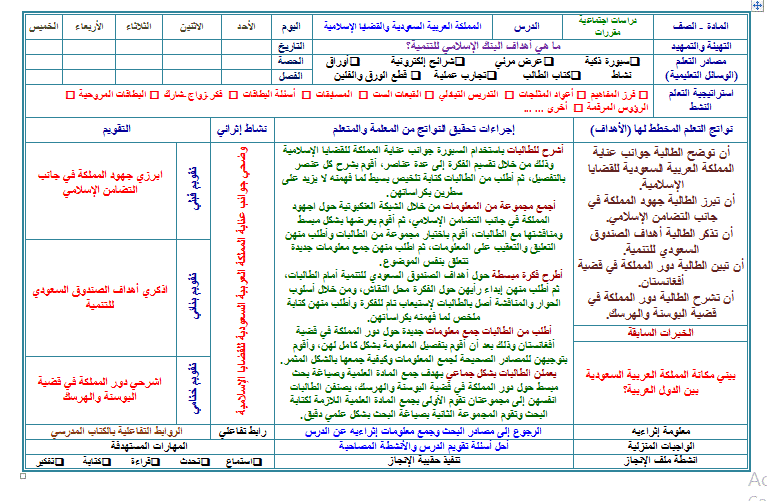 المادة - الصف
دراسات اجتماعية
مقررات
الدرس
المملكة العربية السعودية والقضايا الإسلامية
اليوم
الأحد
الاثنين
الثلاثاء
الأربعاء
الخميس
التهيئة والتمهيد
ما هي أهداف البنك الإسلامي للتنمية؟
التاريخ
مصادر التعلم
(الوسائل التعليمية)
سبورة ذكية
عرض مرئي
شرائح إلكترونية
أوراق
نشاط
كتاب الطالب
تجارب عملية
قطع الورق والفلين
الحصة
الفصل
استراتيجية التعلم
النشط
فرز المفاهيم
أعواد المثلجات
التدريس التبادلي
القبعات الست
المسابقات
أسئلة البطاقات
فكر.زواج.شارك
البطاقات المروحية
الرؤوس المرقمة
أخرى ... ...
نواتج التعلم المخطط لها (الأهداف)
إجراءات تحقيق النواتج من المعلمة والمتعلم
نشاط إثرائي
التقويم
أن توضح الطالبة جوانب عناية
المملكة العربية السعودية للقضايا
الإسلامية.
أن تبرز الطالبة جهود المملكة في
جانب التضامن الإسلامي.
أن تذكر الطالبة أهداف الصندوق
السعودي للتنمية.
أن تبين الطالبة دور المملكة في قضية
أفغانستان.
أن تشرح الطالبة دور المملكة في
قضية البوسنة والهرسك.
الخبرات السابقة
بيني مكانة المملكة العربية السعودية
بين الدول العربية؟
أشرح للطالبات باستخدام السبورة جوانب عناية المملكة للقضايا الإسلامية
وذلك من خلال تقسيم الفكرة إلى عدة عناصر، أقوم بشرح كل عنصر
بالتفصيل، ثم أطلب من الطالبات كتابة تلخيص بسيط لما فهمته لا يزيد على
سطرين بكراساتهن.
أجمع مجموعة من المعلومات من خلال الشبكة العنكبوتية حول اجهود
المملكة في جانب التضامن الإسلامي، ثم أقوم بعرضها بشكل مبسط
ومناقشتها مع الطالبات، أقوم باختيار مجموعة من الطالبات وأطلب منهن
التعليق والتعقيب على المعلومات، ثم اطلب منهن جمع معلومات جديدة
تتعلق بنفس الموضوع.
أطرح فكرة مبسطة حول أهداف الصندوق السعودي للتنمية أمام الطالبات،
ثم أطلب منهن إبداء رأيهن حول الفكرة محل النقاش، ومن خلال أسلوب
الحوار والمناقشة أصل بالطالبات لإستيعاب تام للفكرة وأطلب منهن كتابة
ملخص لما فهمته بكراساتهن.
أطلب من الطالبات جمع معلومات جديدة حول دور المملكة في قضية
أفغانستان وذلك بعد أن أقوم بتفصيل المعلومة بشكل كامل لهن، وأقوم
بتوجيهن للمصادر الصحيحة لجمع المعلومات وكيفية جمعها بالشكل المثمر.
يعملن الطالبات بشكل جماعي بهدف جمع المادة العلمية وصياغة بحث
مبسط حول دور المملكة في قضية البوسنة والهرسك، يصنفن الطالبات
انفسهن إلى مجموعتان تقوم الأولى بجمع المادة العلمية اللازمة لكتابة
البحث وتقوم المجموعة الثانية بصياغة البحث بشكل علمي دقيق.
وضحي جوانب عناية المملكة العربية السعودية للقضايا الإسلامية
تقويم قبلي
ابرزي جهود المملكة في جانب
التضامن الإسلامي
تقويم بنائي
اذكري أهداف الصندوق السعودي
للتنمية
تقويم ختامي
اشرحي دور المملكة في قضية
البوسنة والهرسك
معلومة إثراءيه
الرجوع إلى مصادر البحث وجمع معلومات إثراءيه عن الدرس
رابط تفاعلي
الروابط التفاعلية بالكتاب المدرسي
الواجبات المنزلية
أحل أسئلة تقويم الدرس والأنشطة المصاحبة
المهارات المستهدفة
انشطة ملف الإنجاز
تنفيذ حقيبة الإنجاز
استماع
تحدث
قراءة
كتابة
تفكير